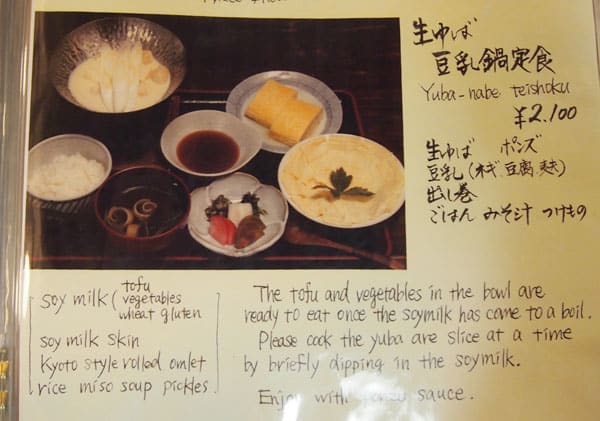 生ゆば
豆乳鍋定食
Yuba-nabe teishoku
¥2.100
生ゆば ポンズ
豆乳(ネギ.豆腐.麩)
出し巻
ごはん みそ汁 つけもの
soy milk ( tofu
vegetables
wheat gluten
soy milk skin
Kyoto style rolled omlet
rice miso soup pickles
The tofu and vegetables in the bowl are
ready to eat once the soymilk has came to a boil.
Please cook the yuba are slice at a time
by briefly dipping in the soymilk.
Enjoy with ponzu sauce.